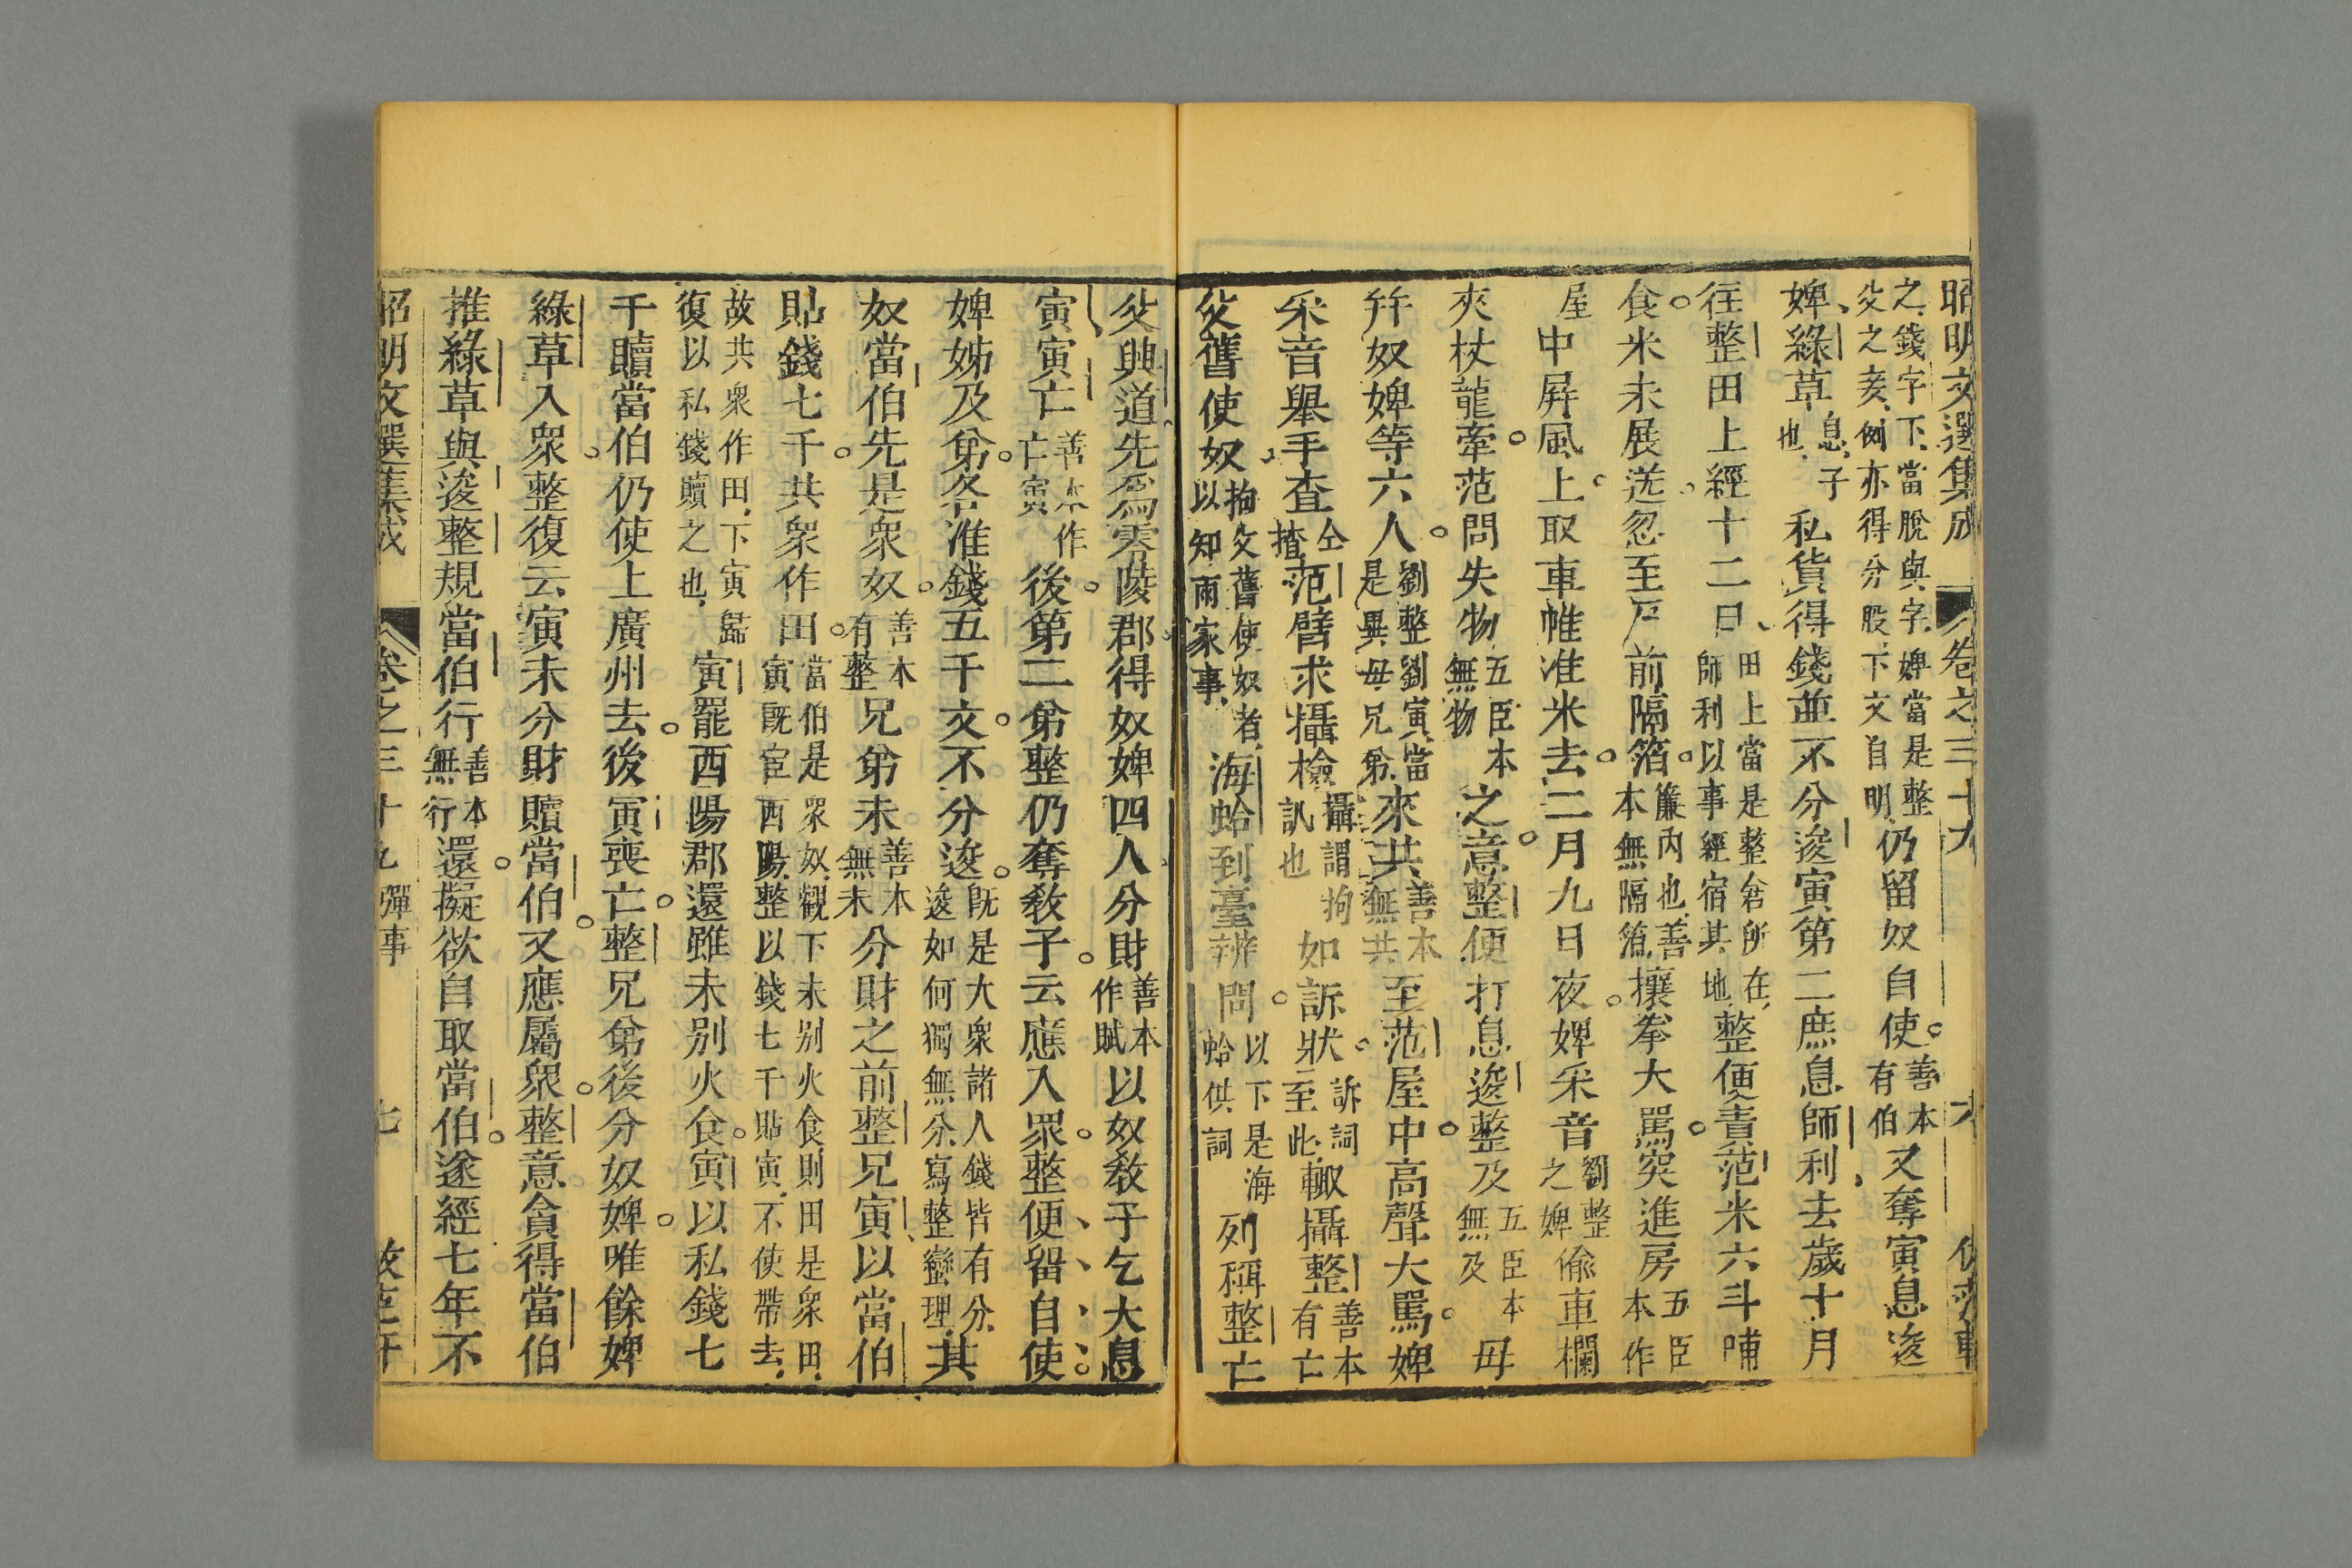 昭明文選集成 卷之三十九 六
之錢字下當脫與字婢當是整父之妾例亦得分股下文自明仍留奴自使善本有伯又奪寅息逡
婢綠草息子也私貨得錢並不分逡寅第二庶息師利去歲十月
往整田上經十二日田上當是整舍所在師利以事經宿其地整便責范米六斗哺
食米未展送忽至戶前隔箔簾內也善本無隔箔攘拳大罵突進房五臣本作
屋中屏風上取車帷准米去二月九日夜婢采音劉整之婢偷車欄
夾杖龍牽范問失物五臣本無物之意整便打息逡整及五臣本無及母
并奴婢等六人劉整劉寅當是異母兄弟來共善本無共至范屋中高聲大罵婢
采音舉手查仝揸范臂求攝檢攝謂拘訊也如訴狀訴詞至此輙攝整善本有亡
父舊使奴拘父舊使奴者以知兩家事海蛤到臺辨問以下是海蛤供詞列稱整亡
父興道先爲零陵郡得奴婢四人分財善本作賦以奴敎子乞大息
寅寅亡善本作亡寅後第二弟整仍奪敎子云應入眾整便留自使
婢姊及弟各准錢五千文不分逡旣是大衆諸人錢皆有分逡如何獨無分寫整蠻理其
奴當伯先是衆奴善本有整兄弟未善本無未分財之前整兄寅以當伯
貼錢七千共衆作田當伯是衆奴觀下未別火食則田是衆田寅旣宦西陽整以錢七千貼寅不使帶去
故共衆作田下寅歸復以私錢贖之也寅罷西陽郡還雖未别火食寅以私錢七
千贖當伯仍使上廣州去後寅喪亡整兄弟後分奴婢唯餘婢
綠草入衆整復云寅未分財贖當伯又應屬衆整意貪得當伯
推綠草與逡整規當伯行善本無行還擬欲自取當伯遂經七年不
昭明文選集成 卷之三十九 彈事 七